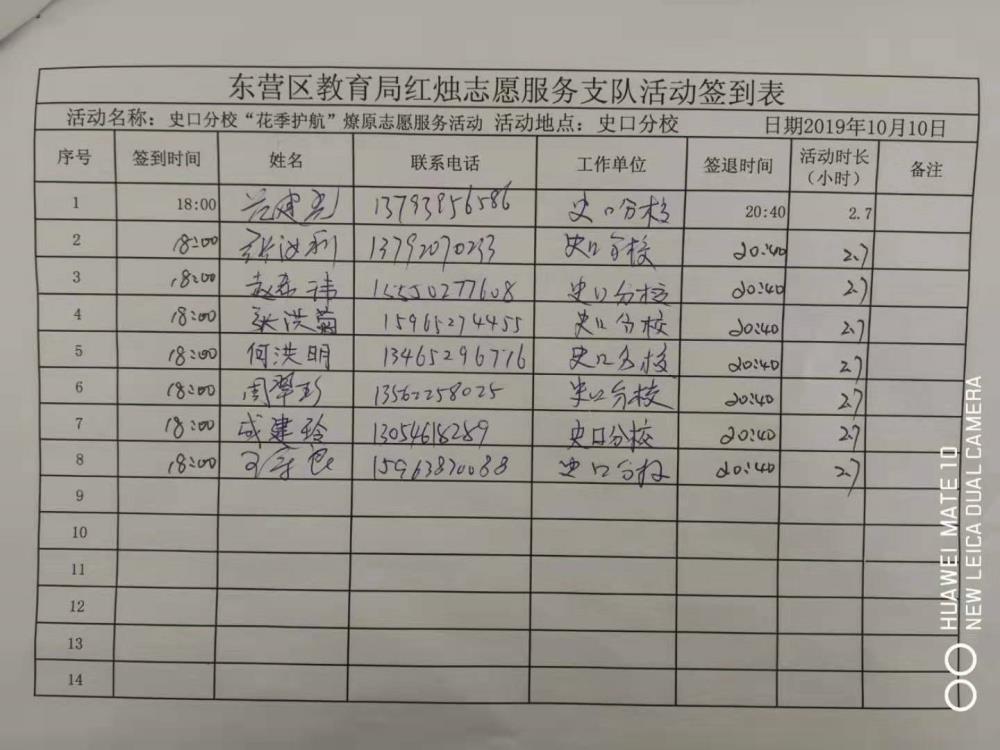 东营区教育局红烛志愿服务支队活动签到表
活动名称：史口分校“花季护航”燎原志愿服务活动 活动地点：史口分校 日期2019年10月10日
序号 签到时间 姓名 联系电话 工作单位 签退时间 活动时长（小时） 备注
1 18:00 13793956586 史口分校 20:40 2.7
2 18:00 13792070233 史口分校 20:40 2.7
3 18:00 15550277608 史口分校 20:40 2.7
4 18:00 张洪菊 15965274455 史口分校 20:40 2.7
5 18:00 何洪明 13465296776 史口分校 20:40 2.7
6 18:00 周翠珍 13562258025 史口分校 20:40 2.7
7 18:00 成建玲 13054618289 史口分校 20:40 2.7
8 18:00 15963870088 史口分校 20:40 2.7
9
10
11
12
13
14
HUAWEI MATE 10
NEW LEICA DUAL CAMERA